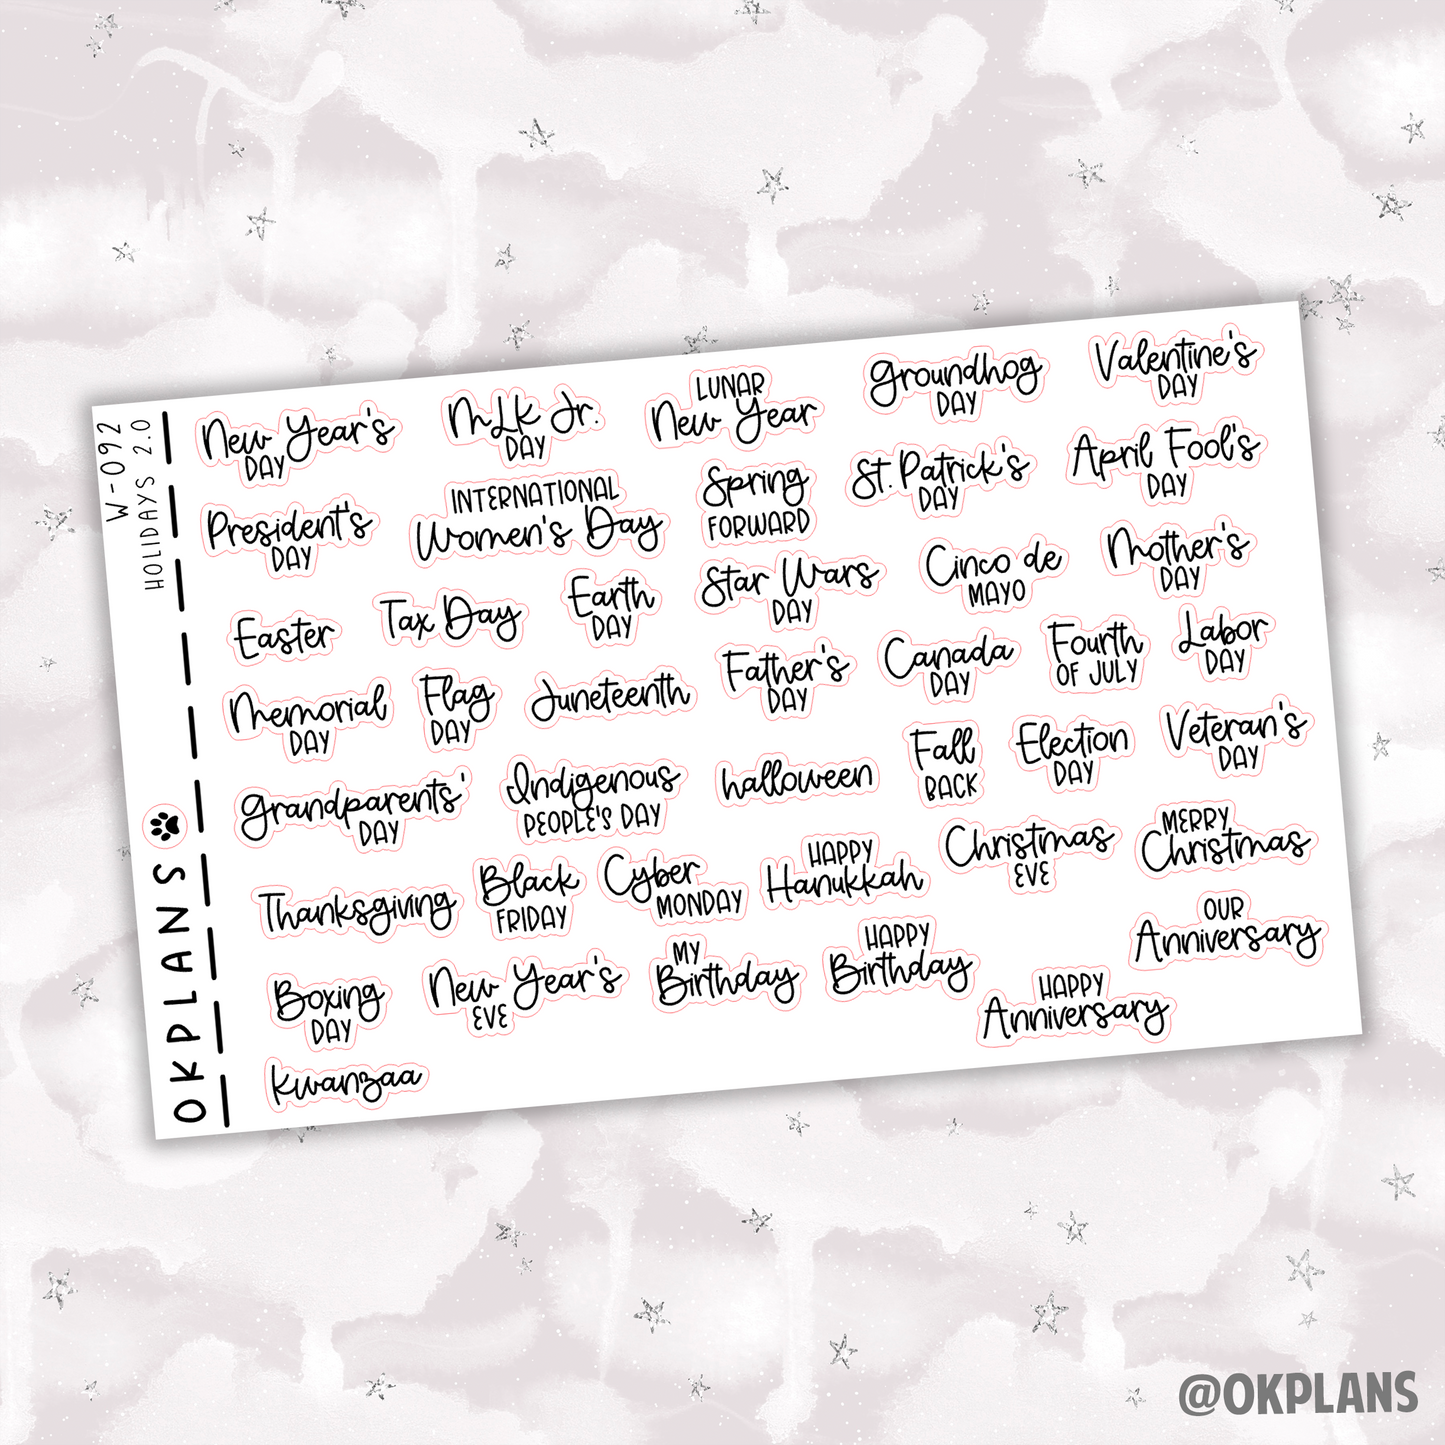 W-092
HOLIDAYS 2.0
OKPLANS
New Year's
DAY
MLK Jr.
DAY
LUNAR
New Year
Groundhog
DAY
Valentine's
DAY
President's
DAY
INTERNATIONAL
Women's Day
Spring
FORWARD
St. Patrick's
DAY
April Fool's
DAY
Easter
Tax Day
Earth
DAY
Star Wars
DAY
Cinco de
MAYO
Mother's
DAY
Memorial
DAY
Flag
DAY
Juneteenth
Father's
DAY
Canada
DAY
Fourth
OF JULY
Labor
DAY
Grandparents'
DAY
Indigenous
PEOPLE'S DAY
halloween
Fall
BACK
Election
DAY
Veteran's
DAY
Thanksgiving
Black
FRIDAY
Cyber
MONDAY
HAPPY
Hanukkah
Christmas
EVE
MERRY
Christmas
Boxing
DAY
New Year's
EVE
MY
Birthday
HAPPY
Birthday
HAPPY
Anniversary
OUR
Anniversary
Kwanzaa
@OKPLANS